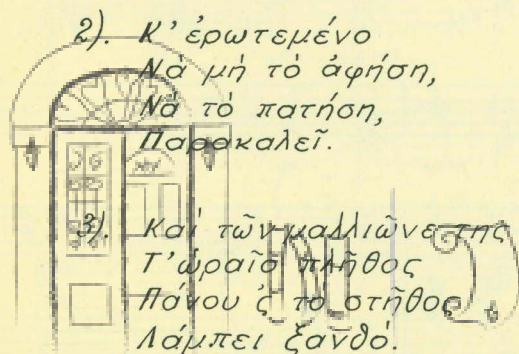 2). Κ' ἐρωτεμένο
Νὰ μὴ τὸ ἀφήση,
Νὰ τὸ πατήση,
Παρακαλεῖ.
3). Καὶ τῶν μαλλιῶνε της
Τ' ὡραῖο πλῆθος
Πάνου ς τὸ στῆθος
Λάμπει ξανθό.